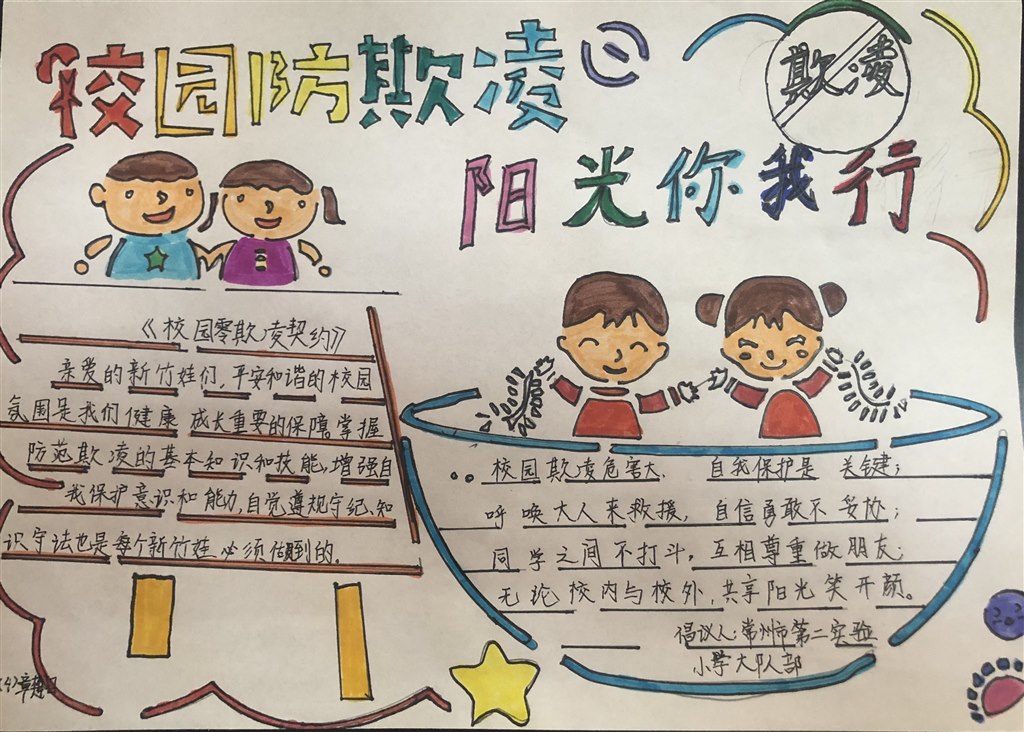 校园防欺凌
欺凌
阳光你我行
《校园零欺凌契约》
亲爱的新竹娃们，平安和谐的校园
氛围是我们健康 成长重要的保障，掌握
防范欺凌的基本知识和技能，增强自
我保护意识和能力，自觉遵规守纪、知
识守法也是每个新竹娃必须做到的。
校园欺凌危害大，自我保护是关键；
呼唤大人来救援，自信勇敢不妥协；
同学之间不打斗，互相尊重做朋友；
无论校内与校外，共享阳光笑开颜。
倡议人：常州市第二实验
小学大队部